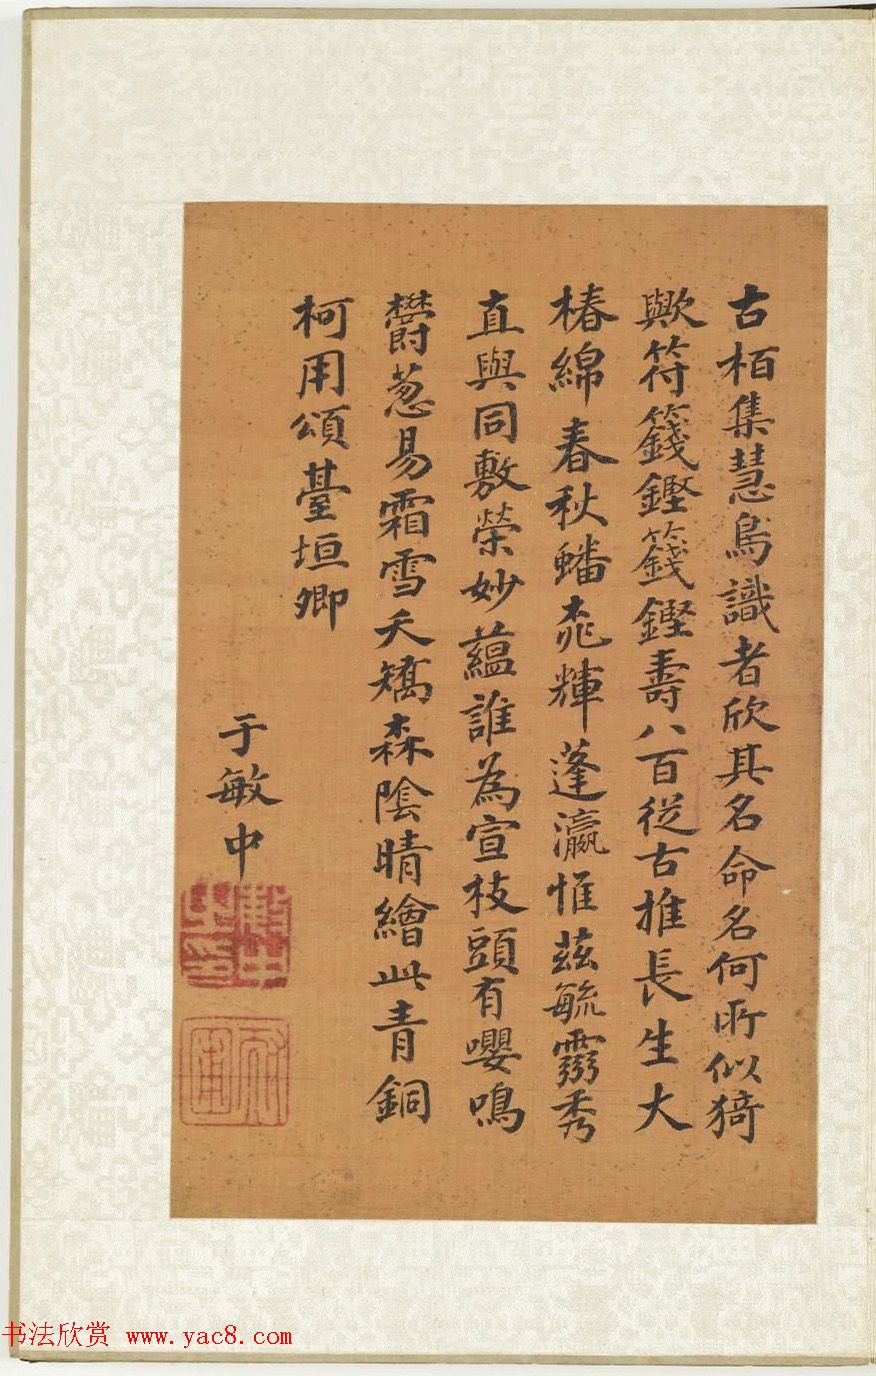 古栢集慧鳥識者欣其名命名何所似猗
歟符籛鏗籛鏗壽八百從古推長生大
椿綿春秋蟠桃輝蓬瀛惟茲毓靈秀
直與同敷榮妙蘊誰為宣枝頭有嚶鳴
欝蔥易霜雪夭矯森陰晴繪此青銅
柯用頌臺垣卿
于敏中
书法欣赏 www.yac8.com